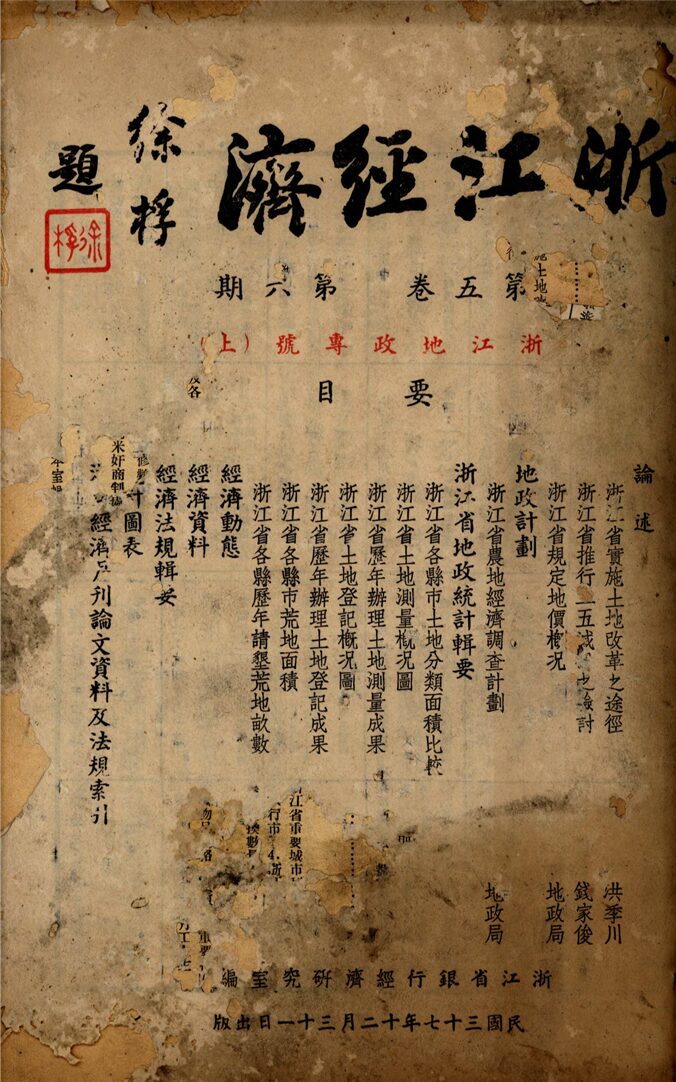 浙江經濟
徐桴
題
徐桴
第五卷　第六期
浙江地政專號（上）
要目
論述
浙江省實施土地改革之途徑　洪季川
浙江省推行二五減之檢討　錢家俊
浙江省規定地價概况　地政局
地政計劃
浙江省農地經濟調查計劃　地政局
浙江省地政統計輯要
浙江省各縣市土地分類面積比較
浙江省土地測量概况圖
浙江省歷年辦理土地測量成果
浙江省土地登記概况圖
浙江省歷年辦理土地登記成果
浙江省各縣市荒地面積
浙江省各縣歷年請墾荒地畝數
經濟動態
經濟資料
經濟法規輯要
計圖表
經濟月刊論文資料及法規索引
土地
及各
米奸商
江省重要城市
行市
浙江省銀行經濟研究室編
民國三十七年十二月三十一日出版